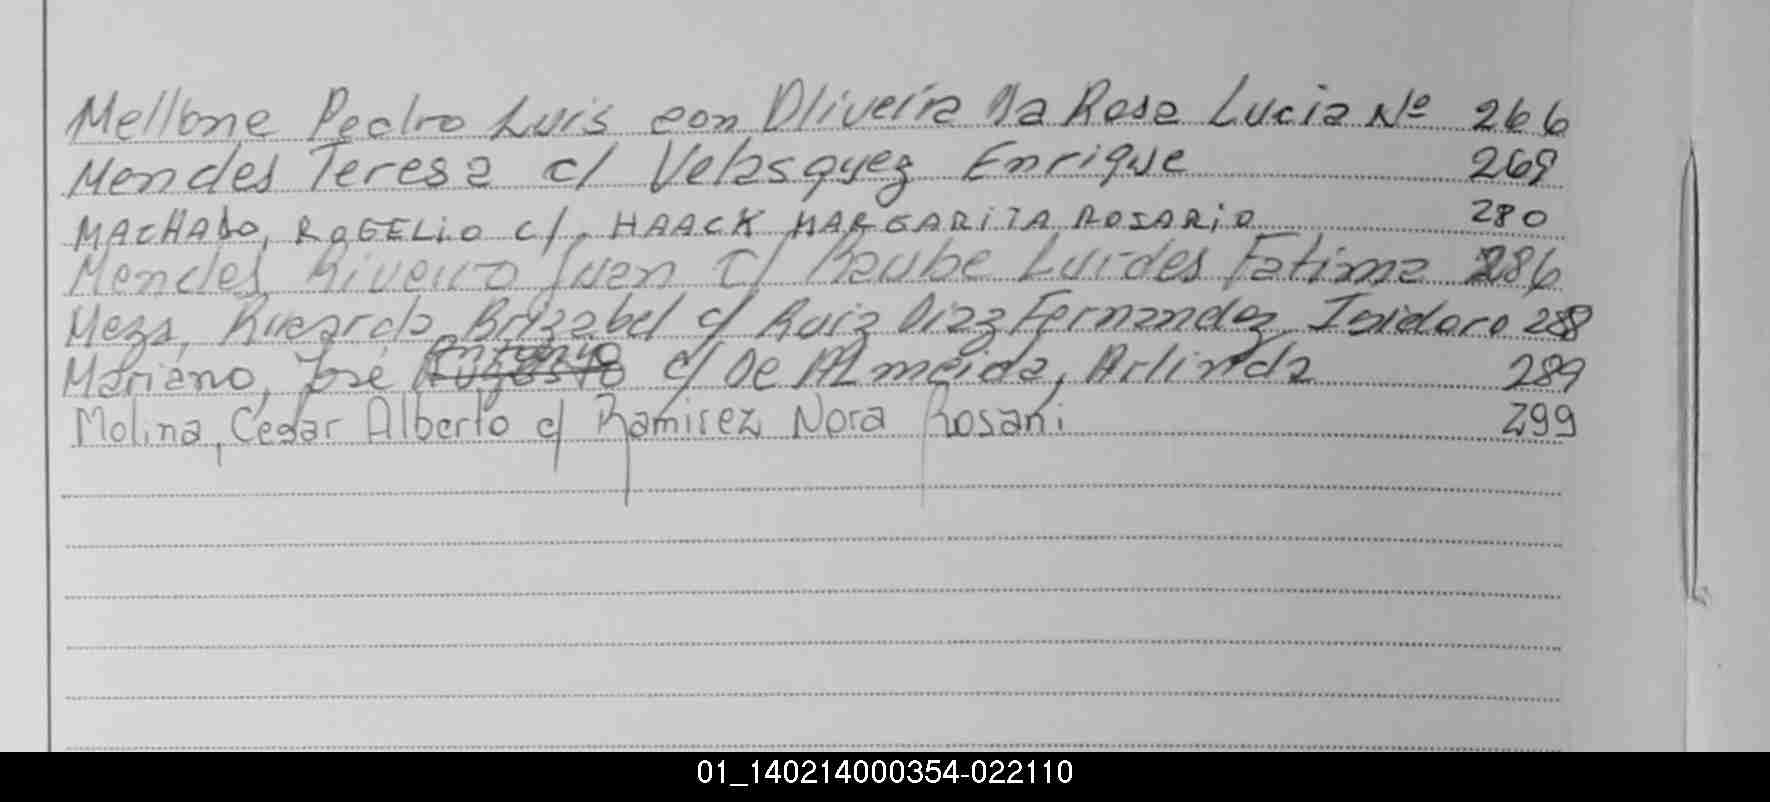 Mellone Pedro Luis con Oliveira Da Rosa Lucia Nº 266
Mendes Teresa c/ Velasquez Enrique 269
MACHADO, ROGELIO c/. HAACK MARGARITA ROSARIO 280
Mendes Riveiro Juan c/ Lurdes Fatima 286
Meza, Ricardo c/ Ruiz Diaz Fernandez, Isidora 288
Mariano, José Antonio c/ De Almeida, Arlinda 289
Molina, Cesar Alberto c/ Ramirez Nora Rosani 299
01_140214000354-022110